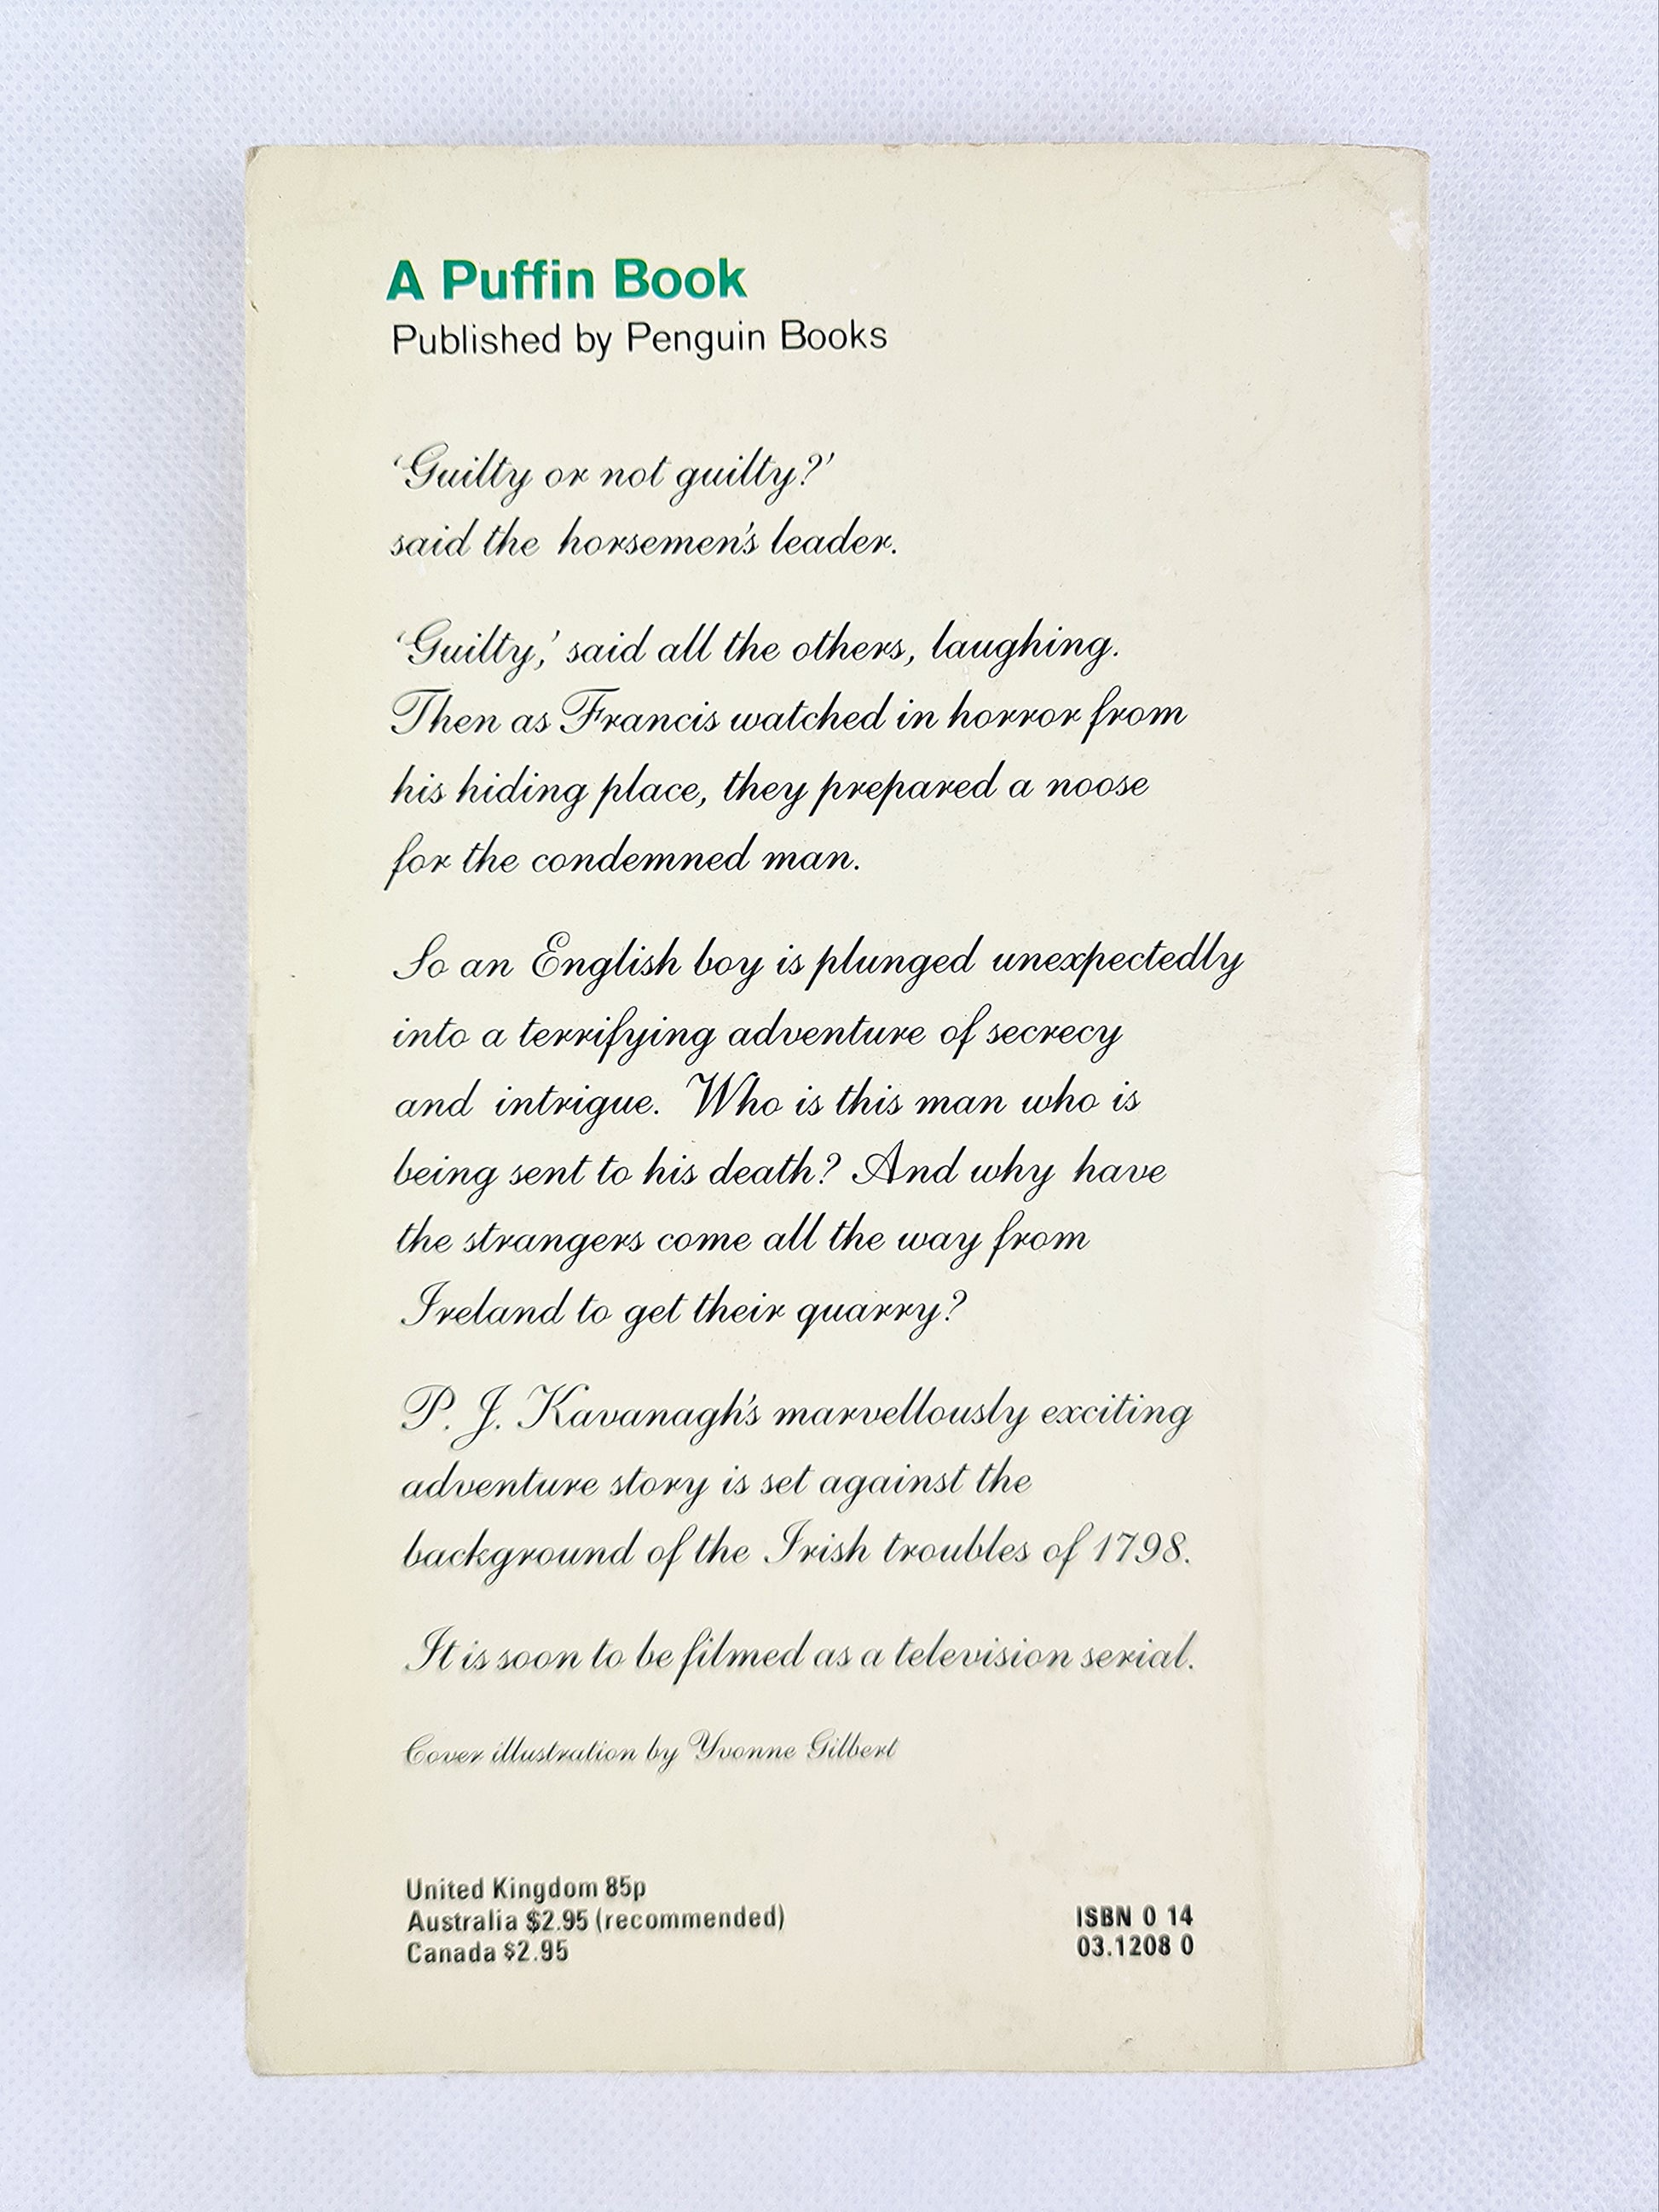 A Puffin Book
Published by Penguin Books
‘Guilty or not guilty?’
said the horsemen's leader.
‘Guilty,’ said all the others, laughing.
Then as Francis watched in horror from
his hiding place, they prepared a noose
for the condemned man.
So an English boy is plunged unexpectedly
into a terrifying adventure of secrecy
and intrigue. Who is this man who is
being sent to his death? And why have
the strangers come all the way from
Ireland to get their quarry?
P. J. Kavanagh's marvellously exciting
adventure story is set against the
background of the Irish troubles of 1798.
It is soon to be filmed as a television serial.
Cover illustration by Yvonne Gilbert
United Kingdom 85p
Australia $2.95 (recommended)
Canada $2.95
ISBN 0 14
03.1208 0